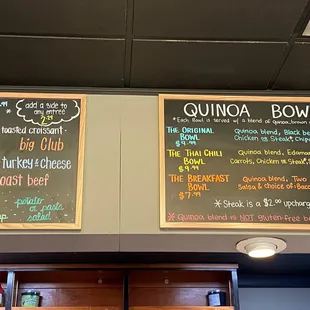 .99
add a side to
any entree
2.29
toasted croissant
big Club
turkey & cheese
roast beef
potato or pasta
salad
QUINOA BOW
*Each Bowl is served w/ a blend of quinoa, brown
THE ORIGINAL
BOWL
$9.99
Quinoa blend, Black be
Chicken or Steak*, Chip
THE THAI CHILI
BOWL
$9.99
Quinoa blend, Edamam
Carrots, Chicken or Steak*,
THE BREAKFAST
BOWL
$7.99
Quinoa blend, Two
Salsa & choice of: Baco
*Steak is a $2.00 upchar
*Quinoa blend is NOT gluten-free b